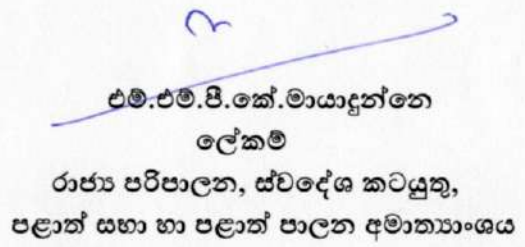 එම්.එම්.පී.කේ.මායාදුන්නෙ
ලේකම්
රාජ්‍ය පරිපාලන, ස්වදේශ කටයුතු,
පළාත් සභා හා පළාත් පාලන අමාත්‍යාංශය